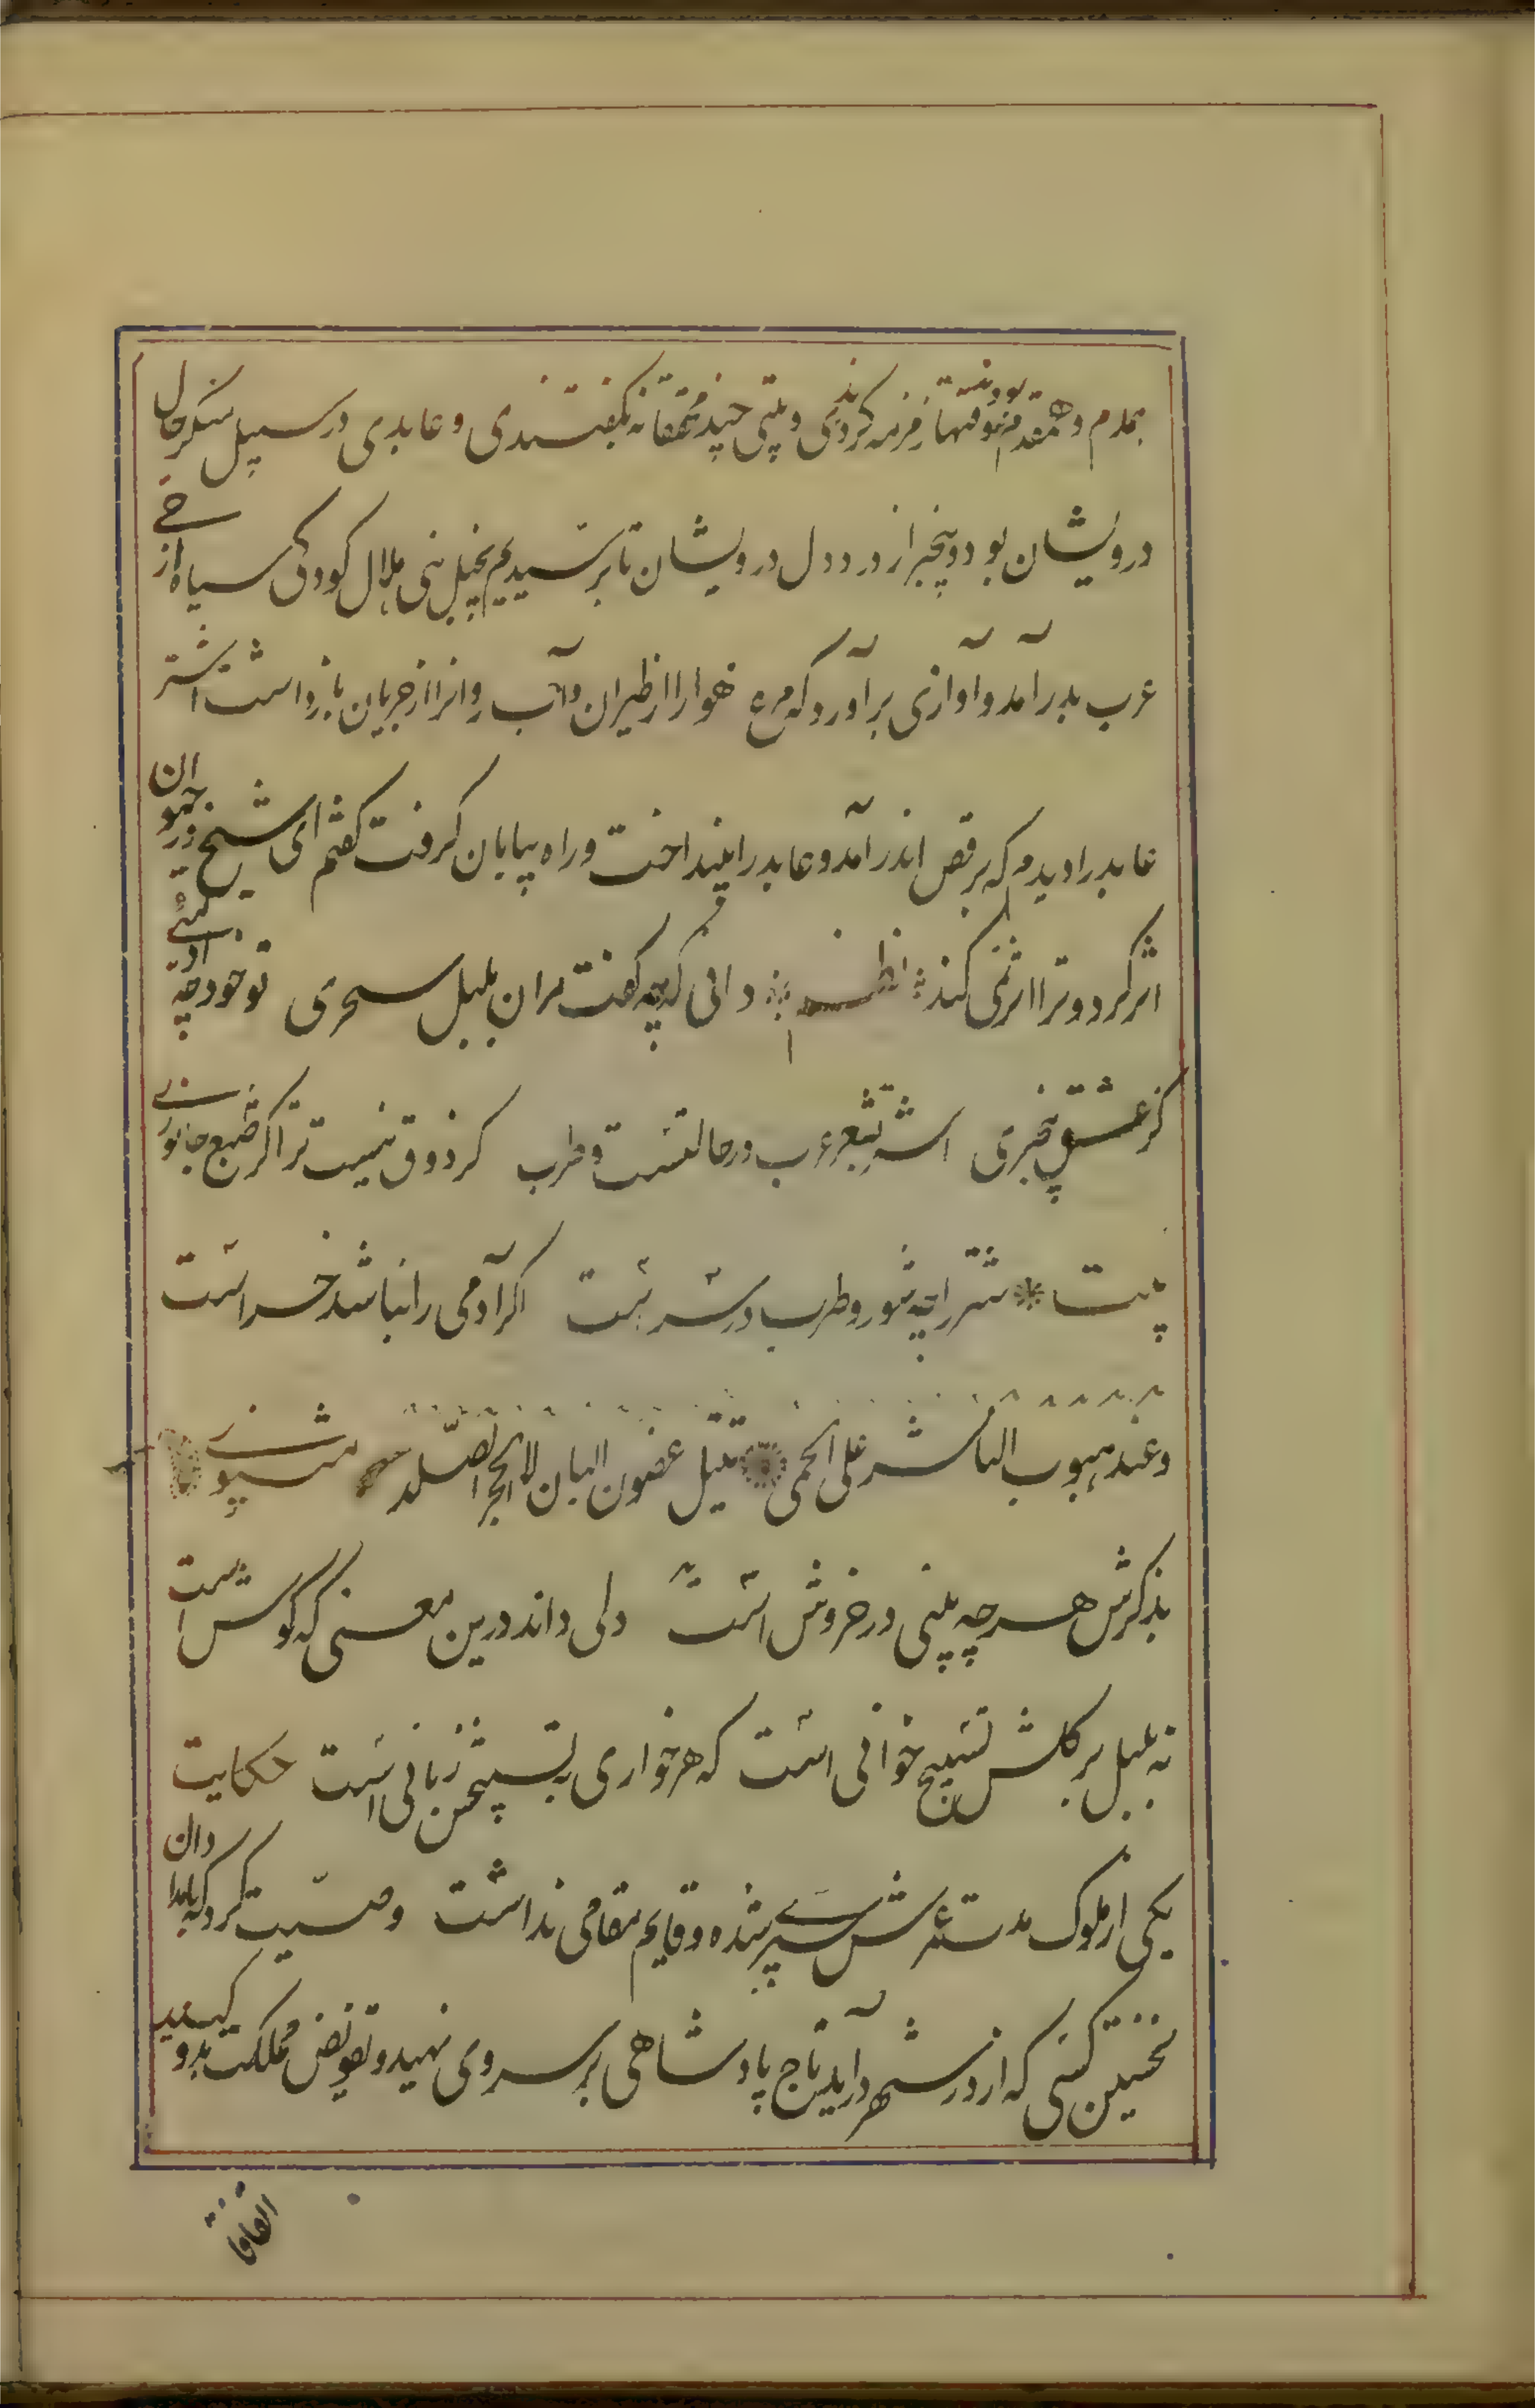 همدم و همقدم بودند وقتها زمزمه کردندی و بیتی چند محققانه بگفتندی و عابدی در سبیل منکر حال
درویشان بود و بیخبر از درد دل درویشان تا برسیدیم بنخیل بنی هلال کودکی سیاه از حی
عرب بدر آمد و آوازی برآورد که مرغ هوا را از طیران و آب روانرا از جریان بازداشت اشتر
عابد را دیدم که برقص اندر آمد و عابد را بینداخت و راه بیابان گرفت گفتم ای شیخ در حیوان
اثر کرد و ترا اثر نمی کند نظم دانی که چه گفت مران بلبل سحری تو خود چه آدمیئی
کز عشق بیخبری اشتر بشعر عرب در حالتست و طرب گر ذوق نیست ترا کژ طبع جانوری
بیت شتر را چه شور و طرب در سرست اگر آدمی را نباشد خر است
وعند هبوب الناشر علی الحمی تمیل غصون البان لا الحجر الصلد مثنوی
بذکرش هر چه بینی در خروش است دلی داند درین معنی که گوش است
نه بلبل بر گلش تسبیح خوانی است که هر خواری به تسبیحش زبانی است حکایت
یکی از ملوک مدت عمرش سپری شده و قایم مقامی نداشت وصیت کرد که بامدادان
نخستین کسی که از در شهر درآید تاج پادشاهی بر سر وی نهید و تفویض مملکت بدو کنید
اتفاقا